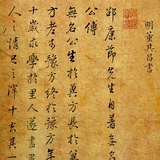 明董其昌書
邵康節先生自著無名
公傳
無名公生於冀方長於冀
方老於豫方終於豫方年
十歲求學於里人遂盡里
人之情己之滓十去其一